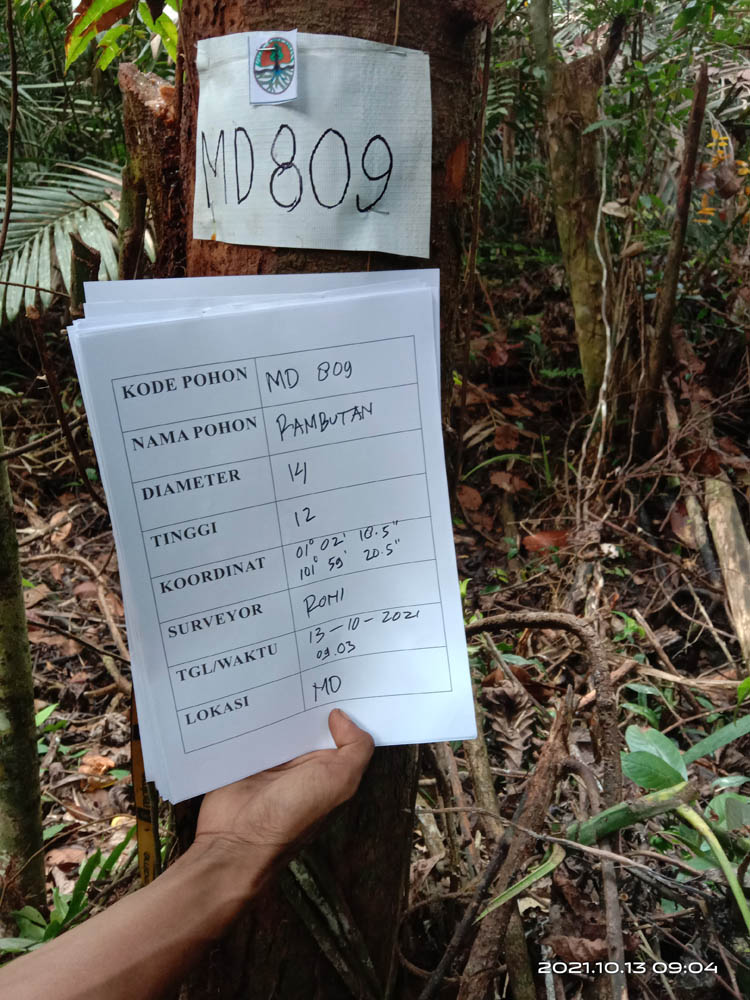 MD 809
KODE POHON MD 809
NAMA POHON RAMBUTAN
DIAMETER 14
TINGGI 12
KOORDINAT 01° 02' 18.5"
101° 59' 20.5"
SURVEYOR ROMI
TGL/WAKTU 13-10-2021
09.03
LOKASI MD
2021.10.13 09:04